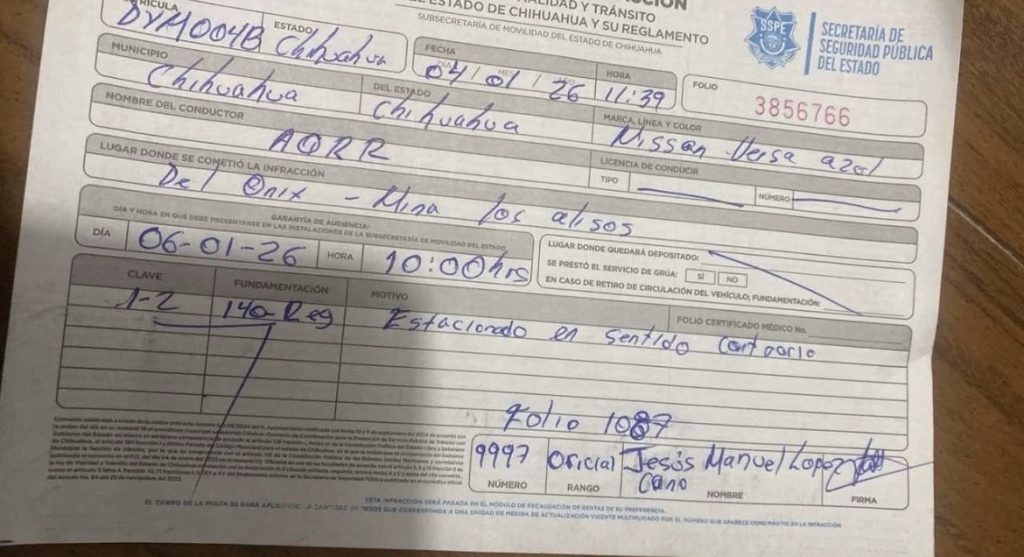 VIALIDAD Y TRÁNSITO
ESTADO DE CHIHUAHUA Y SU REGLAMENTO
SUBSECRETARÍA DE MOVILIDAD DEL ESTADO DE CHIHUAHUA
SSPE
SECRETARÍA DE
SEGURIDAD PÚBLICA
DEL ESTADO
ESTADO
DYM004B Chihuahua
FECHA
HORA
04/01/26 11:39
FOLIO
3856766
MUNICIPIO
Chihuahua
DEL ESTADO
Chihuahua
MARCA, LÍNEA Y COLOR
Nissan Versa azul
NOMBRE DEL CONDUCTOR
AORR
LICENCIA DE CONDUCIR
TIPO
NÚMERO
LUGAR DONDE SE COMETIÓ LA INFRACCIÓN
Del Onix - Mina los alisos
GARANTÍA DE AUDIENCIA:
DÍA Y HORA EN QUE DEBE PRESENTARSE EN LAS INSTALACIONES DE LA SUBSECRETARÍA DE MOVILIDAD DEL ESTADO,
DÍA 06-01-26 HORA 10:00hrs
LUGAR DONDE QUEDARÁ DEPOSITADO:
SE PRESTÓ EL SERVICIO DE GRÚA: SÍ NO
EN CASO DE RETIRO DE CIRCULACIÓN DEL VEHÍCULO; FUNDAMENTACIÓN:
CLAVE FUNDAMENTACIÓN MOTIVO FOLIO CERTIFICADO MÉDICO No.
1-2 140-Reg Estacionado en sentido contrario
Folio 1087
9997 Oficial Jesús Manuel Lopez
Cano
NÚMERO RANGO NOMBRE FIRMA
ESTA INFRACCIÓN SERÁ PAGADA EN EL MÓDULO DE RECAUDACIÓN DE RENTAS DE SU PREFERENCIA.
EL COBRO DE LA MULTA SE HARÁ APLICANDO LA CANTIDAD EN PESOS QUE CORRESPONDA A UNA UNIDAD DE MEDIDA DE ACTUALIZACIÓN VIGENTE MULTIPLICADO POR EL NÚMERO QUE APARECE COMO MÁXIMO, EN LA INFRACCIÓN